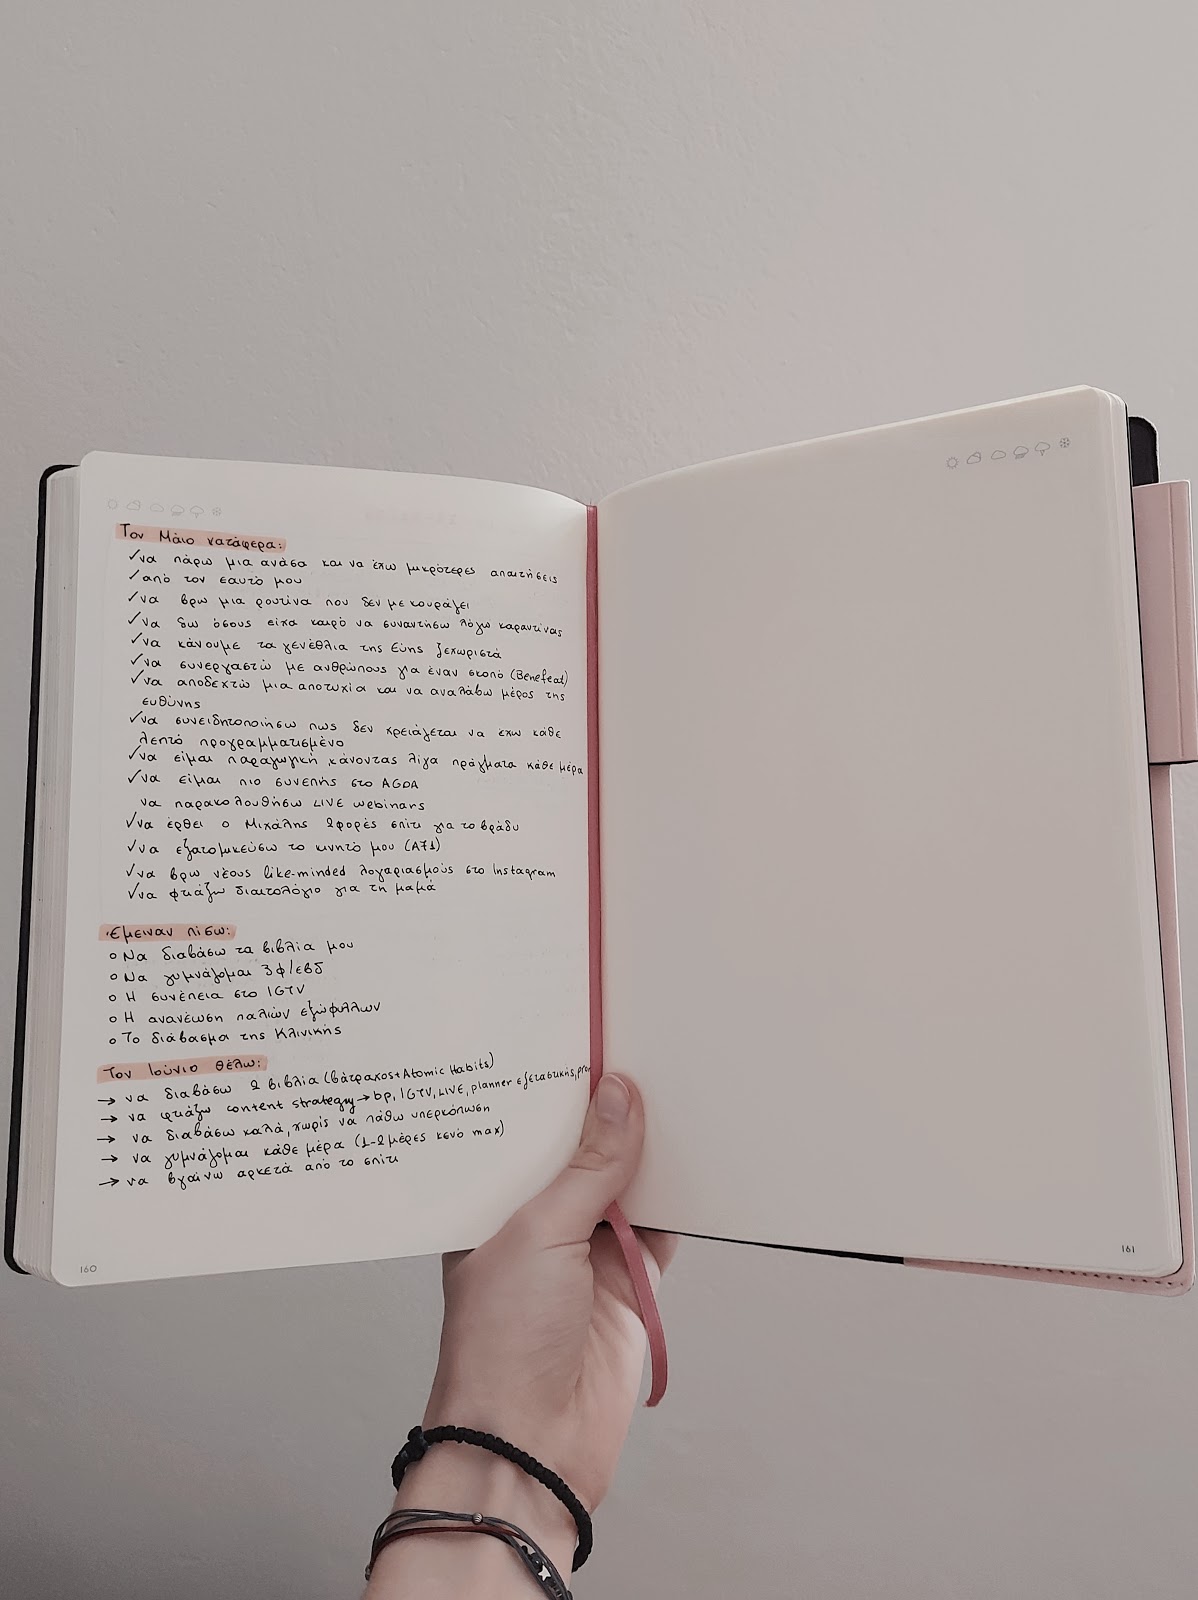 Τον Μάιο κατάφερα:
✓να πάρω μια ανάσα και να έχω μικρότερες απαιτήσεις
✓από τον εαυτό μου
✓να βρω μια ρουτίνα που δεν με κουράζει
✓να δω όσους είχα καιρό να συναντήσω λόγω καραντίνας
✓να κάνουμε τα γενέθλια της Εύης ξεχωριστά
✓να συνεργαστώ με ανθρώπους για έναν σκοπό (Benefeat)
✓να αποδεχτώ μια αποτυχία και να αναλάβω μέρος της
ευθύνης
✓να συνειδητοποιήσω πως δεν χρειάζεται να έχω κάθε
λεπτό προγραμματισμένο
✓να είμαι παραγωγική κάνοντας λίγα πράγματα κάθε μέρα
✓να είμαι πιο συνεπής στο AGDA
να παρακολουθήσω LIVE webinars
✓να έρθει ο Μιχάλης 2 φορές σπίτι για το βράδυ
✓να εξατομικεύσω το κινητό μου (A71)
✓να βρω νέους like-minded λογαριασμούς στο Instagram
✓να φτιάξω διαιτολόγιο για τη μαμά
Έμειναν πίσω:
ο Να διαβάσω τα βιβλία μου
ο Να γυμνάζομαι 3φ/εβδ
ο Η συνέπεια στο IGTV
ο Η ανανέωση παλιών εξώφυλλων
ο Το διάβασμα της Κλινικής
Τον Ιούνιο θέλω:
→ να διαβάσω 2 βιβλία (βάτραχος+Atomic Habits)
→ να φτιάξω content strategy→bp, IGTV, LIVE, planner εξεταστικής,
→ να διαβάσω καλά, χωρίς να πάθω υπερκόπωση
→ να γυμνάζομαι κάθε μέρα (1-2 μέρες κενό max)
→ να βγαίνω αρκετά από το σπίτι
160
161